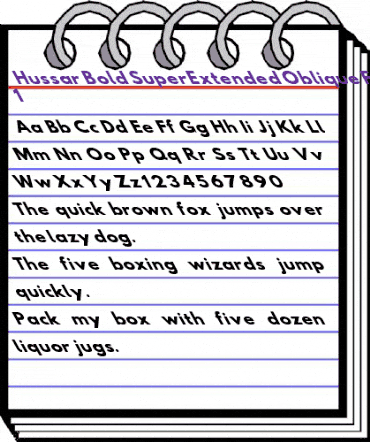 Hussar Bold SuperExtended Oblique
1
Aa Bb Cc Dd Ee Ff Gg Hh Ii Jj Kk Ll
Mm Nn Oo Pp Qq Rr Ss Tt Uu Vv
Ww Xx Yy Zz1234567890
The quick brown fox jumps over
the lazy dog.
The five boxing wizards jump
quickly.
Pack my box with five dozen
liquor jugs.